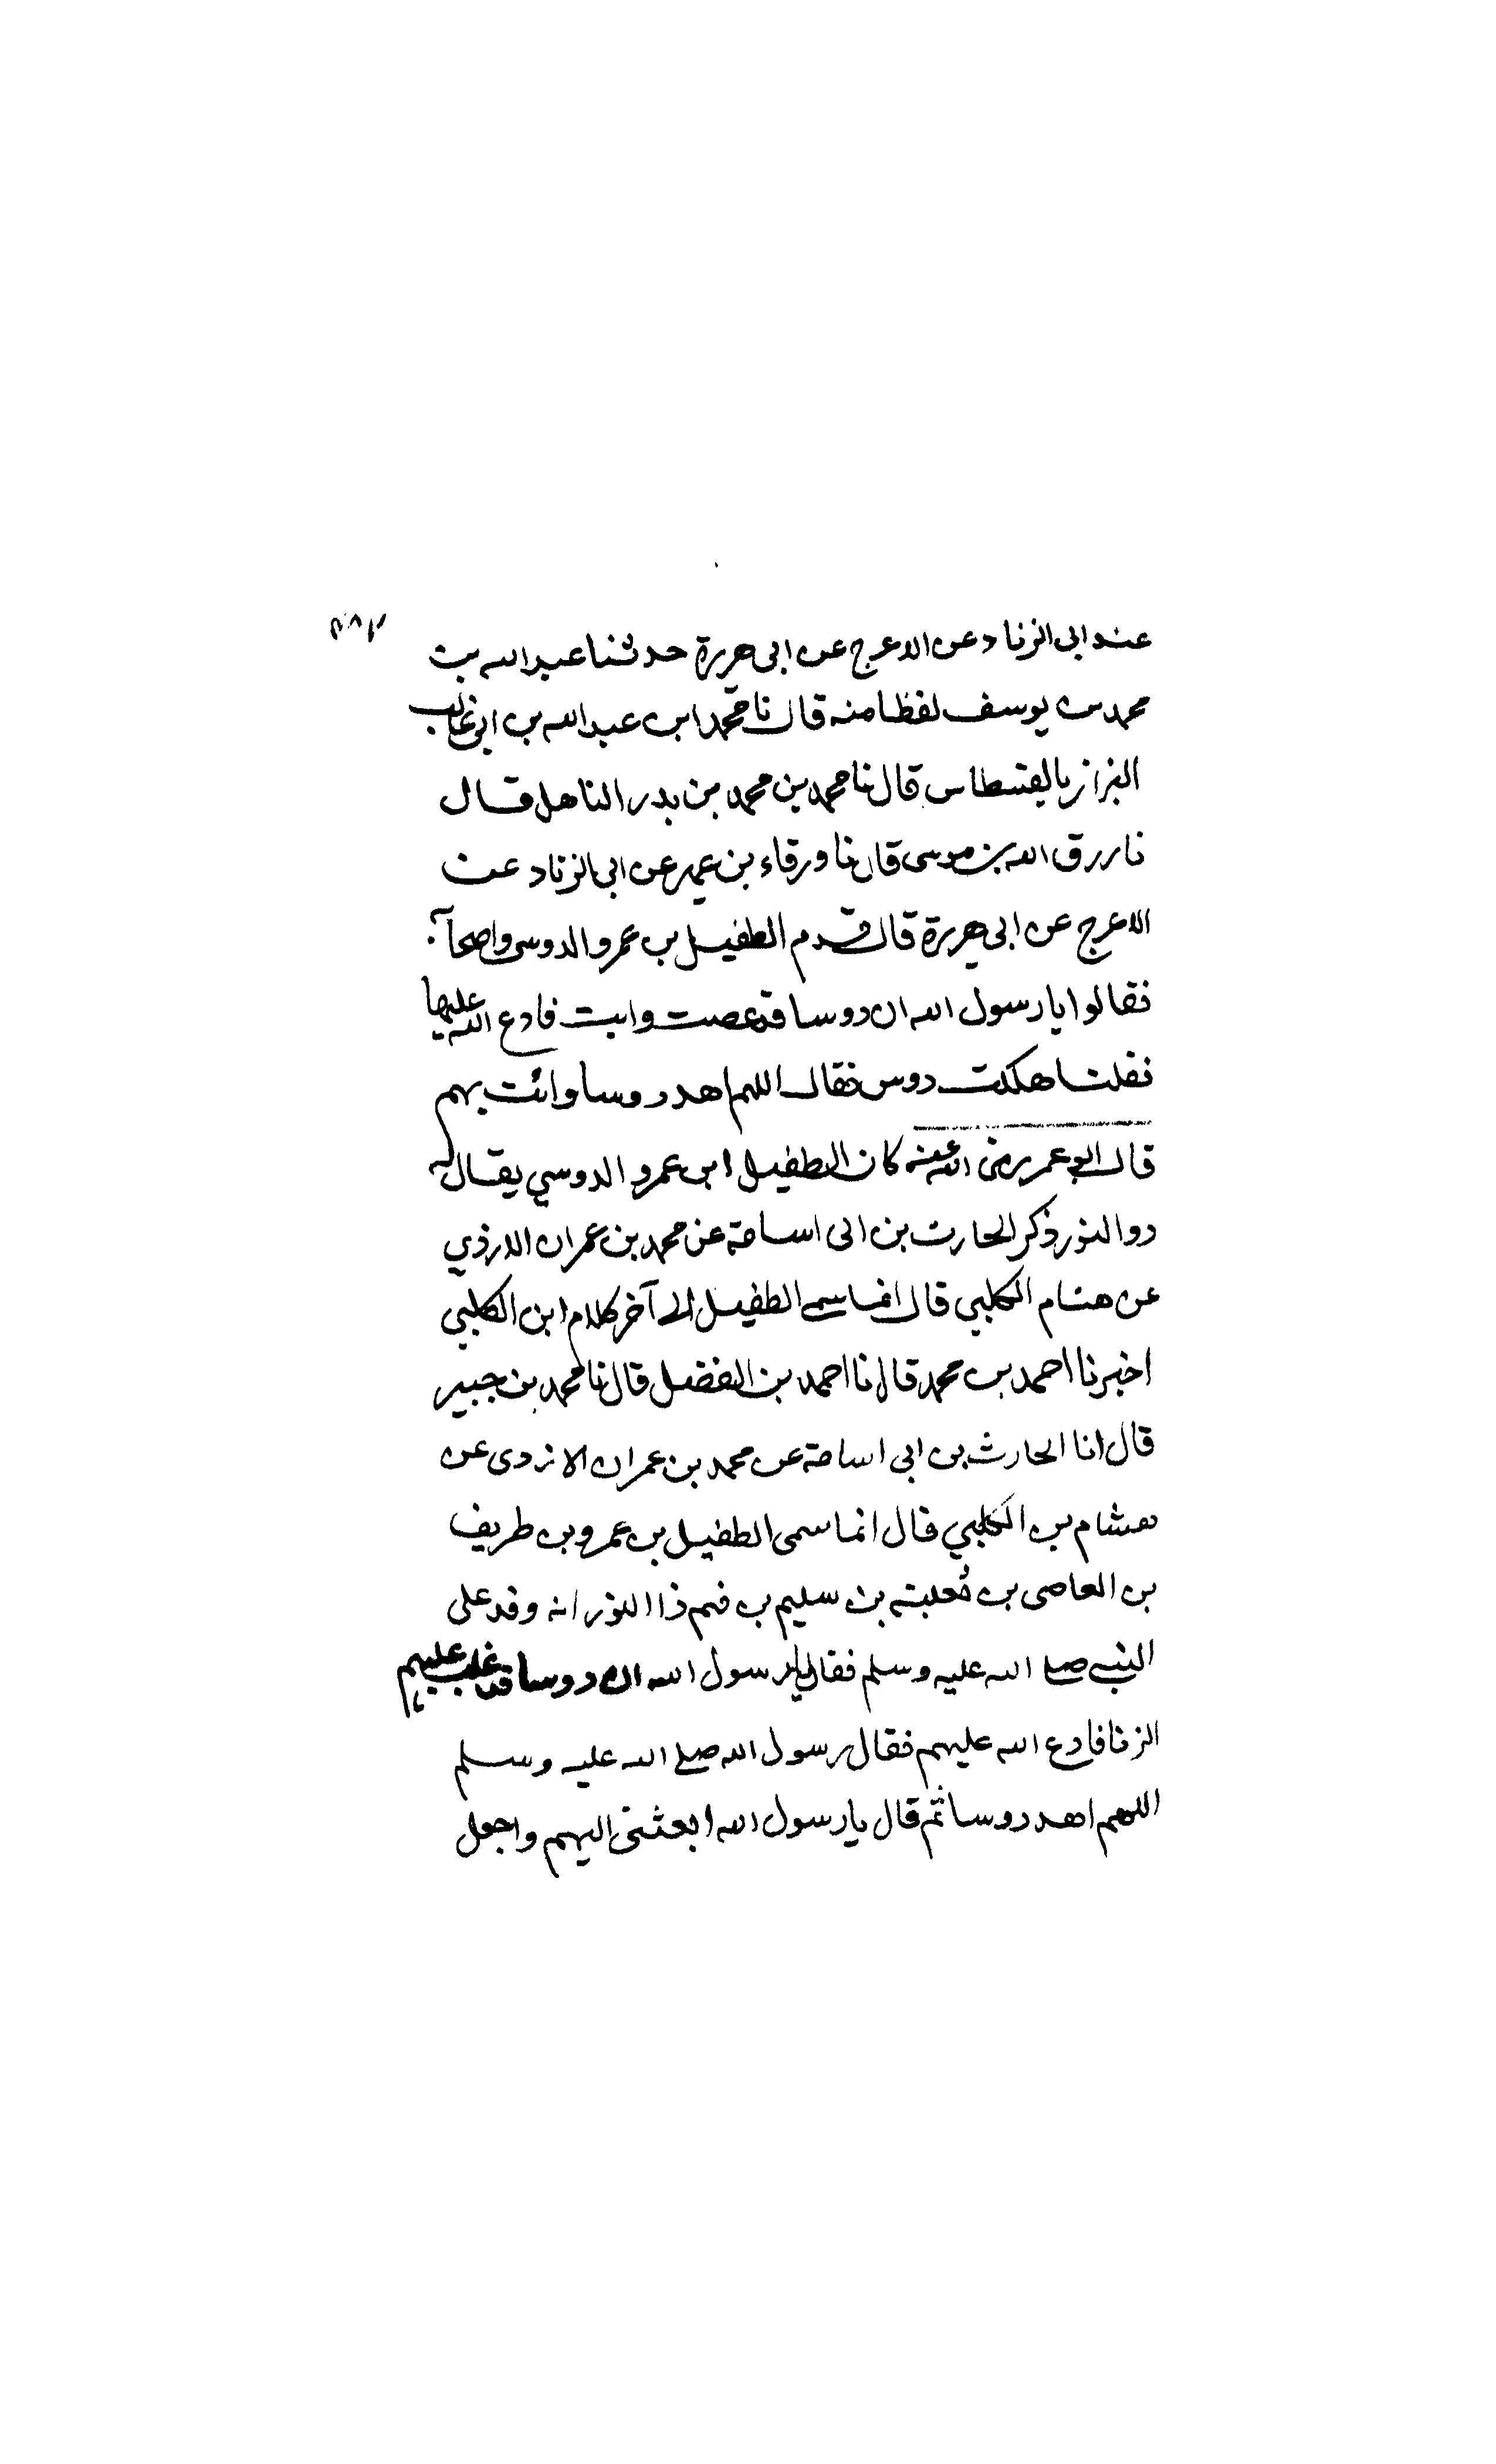 عند ابى الزناد عن الاعرج عن ابى هريرة حدثنا عبد الله بن
محمد بن يوسف لفظا منه قال نا محمد ابن عبد الله بن ابى غالب
البزاز بالفسطاس قال نا محمد بن محمد بن بدر الناهل قال
نا رزق الله بن موسى قال نا ورقاء بن عمير عن ابى الزناد عن
الاعرج عن ابى هريرة قال قدم الطفيل بن عمرو الدوسى واصحابه
فقالوا يا رسول الله ان دوسا قد عصت وابت فادع الله عليها
فقلنا هلكت دوس فقال اللهم اهد دوسا وائت بهم
قال ابو عمر رضى الله عنه كان الطفيل ابن عمرو الدوسي يقال له
ذو النور ذكر الحارث بن ابى اسامة عن محمد بن عمران الازدي
عن هشام الكلبي قال انما سمى الطفيل الى آخر كلام ابن الكلبي
اخبرنا احمد بن محمد قال نا احمد بن الفضل قال نا محمد بن جبير
قال انا الحارث بن ابى اسامة عن محمد بن عمران الازدى عن
هشام بن الكلبي قال انما سمى الطفيل بن عمرو بن طريف
بن العاصى بن ثعلبة بن سليم بن فهم ذا النور انه وفد على
النبى صلى الله عليه وسلم فقال يا رسول الله ان دوسا قد غلب عليهم
الزنا فادع الله عليهم فقال رسول الله صلى الله عليه وسلم
اللهم اهد دوسا ثم قال يا رسول الله ابعثنى اليهم واجعل